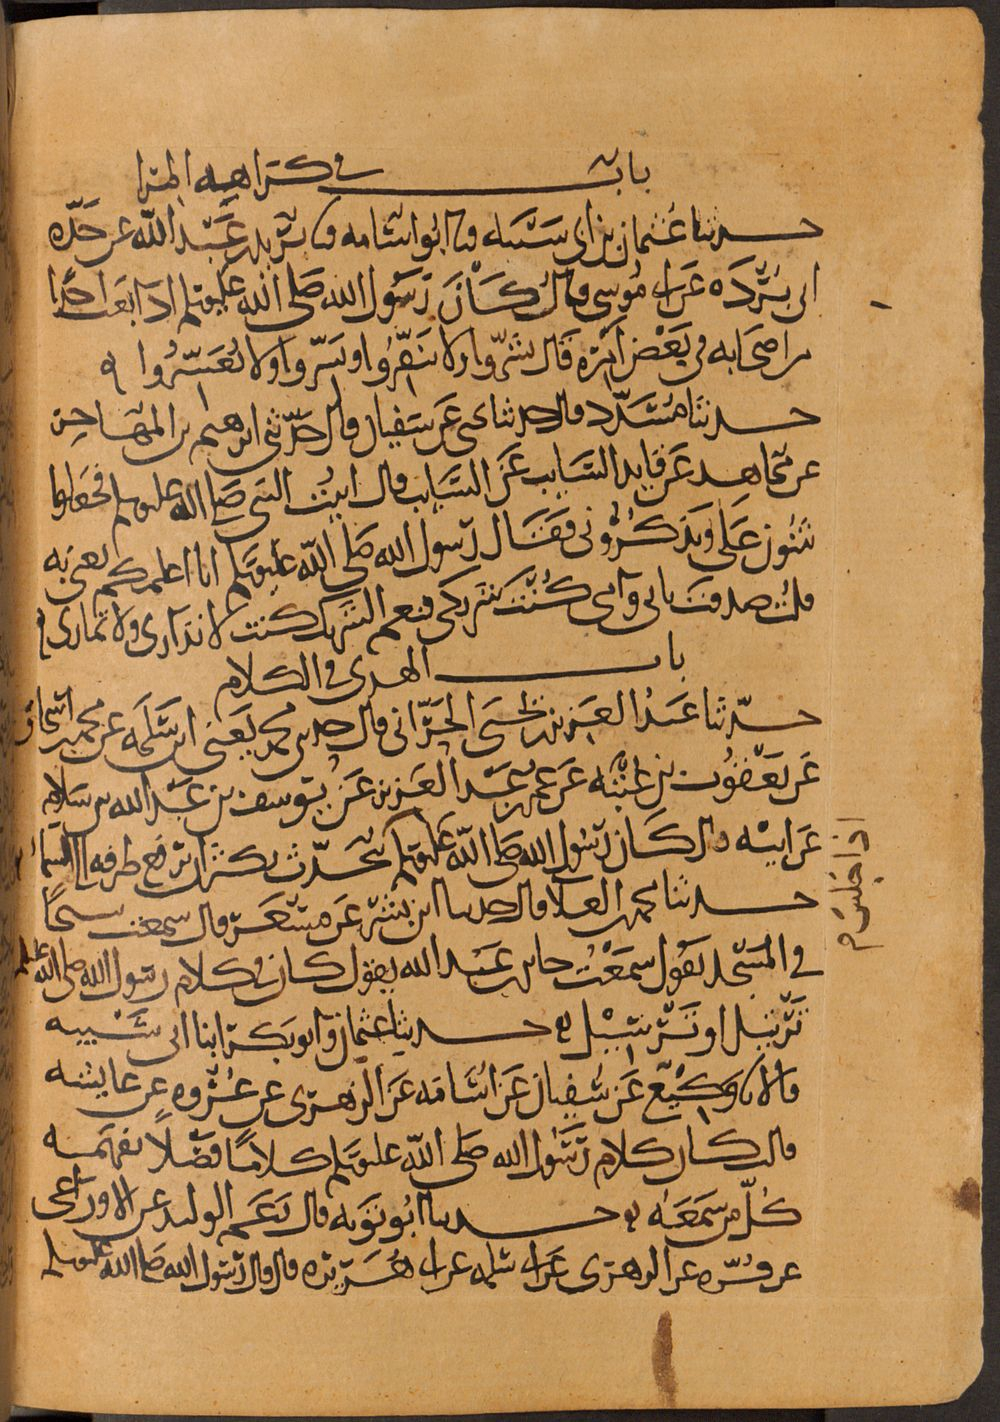 باب في كراهية المرا
حدثنا عثمان بن ابي شيبة نا ابو اسامة نا بريد بن عبد الله عن جده
ابي بردة عن ابي موسى قال كان رسول الله صلى الله عليه وسلم اذا بعث احدا
من اصحابه في بعض امره قال بشروا ولا تنفروا ويسروا ولا تعسروا ه
حدثنا مسدد قال حدثنا يحيى عن سفيان قال حدثني ابرهيم بن المهاجر
عن مجاهد عن قايد السايب عن السايب قال اتيت النبي صلى الله عليه وسلم فجعلوا
يثنون علي ويذكروني فقال رسول الله صلى الله عليه وسلم انا اعلمكم يعني به
قلت صدقت بابي وامي كنت شريكي فنعم الشريك كنت لا تداري ولا تماري ه
باب الهدي في الكلام
حدثنا عبد العزيز بن يحيى الحراني قال حدثني محمد يعني ابن سلمة عن محمد بن اسحاق
عن يعقوب بن عتبة عن عمر بن عبد العزيز عن يوسف بن عبد الله بن سلام
عن ابيه قال كان رسول الله صلى الله عليه وسلم يتحدث يكثر ان يرفع طرفه الى السماء
اذا جلس م
حدثنا محمد بن العلا قال حدثنا ابن بشر عن مسعر قال سمعت شيخا
في المسجد يقول سمعت جابر بن عبد الله يقول كان في كلام رسول الله صلى الله عليه وسلم
ترتيل او ترسيل ه حدثنا عثمان وابو بكر ابنا ابي شيبة
قالا نا وكيع عن سفيان عن اسامة عن الزهري عن عروة عن عايشة
قالت كان كلام رسول الله صلى الله عليه وسلم كلاما فصلا يفهمه
كل من سمعه ه حدثنا ابو توبة قال زعم الوليد عن الاوزاعي
عن قرة عن الزهري عن ابي سلمة عن ابي هريرة قال قال رسول الله صلى الله عليه وسلم